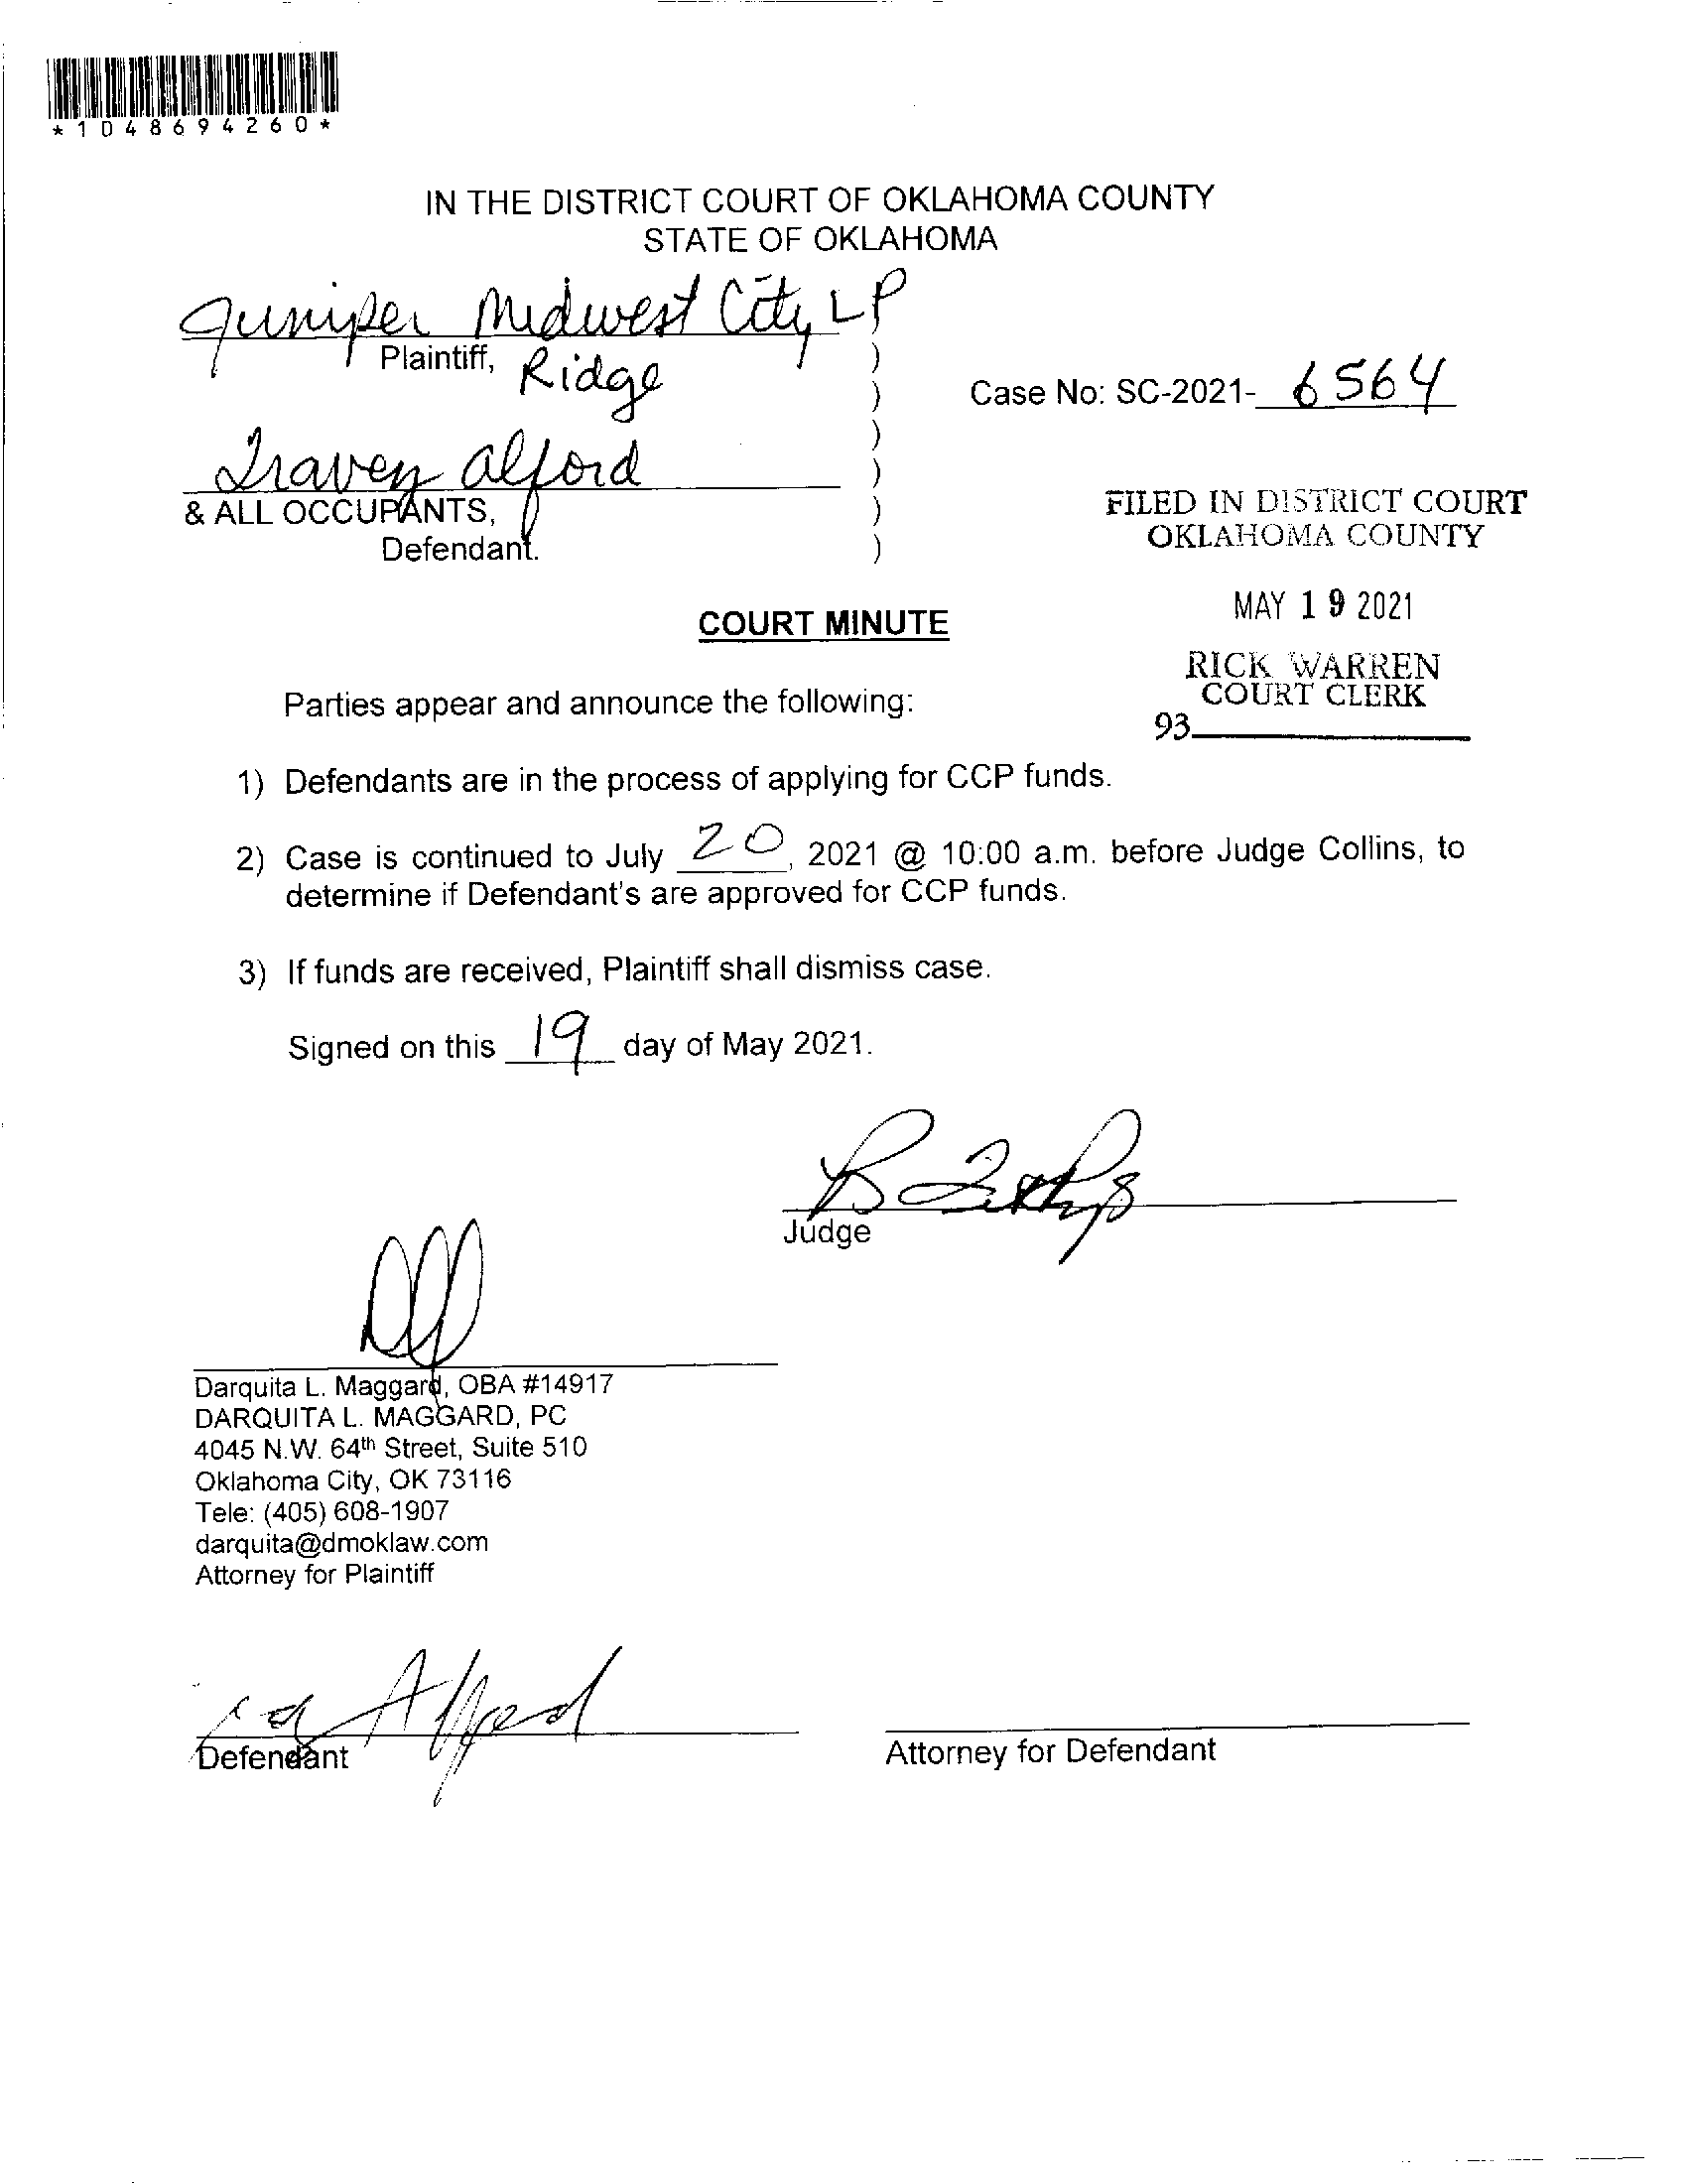 *1048694260*
IN THE DISTRICT COURT OF OKLAHOMA COUNTY
STATE OF OKLAHOMA
Juniper Midwest City LP
Plaintiff, Ridge
)
)
Case No: SC-2021- 6564
)
Traven Alford
)
& ALL OCCUPANTS,
)
Defendant.
)
FILED IN DISTRICT COURT
OKLAHOMA COUNTY
MAY 19 2021
RICK WARREN
COURT CLERK
93
COURT MINUTE
Parties appear and announce the following:
1) Defendants are in the process of applying for CCP funds.
2) Case is continued to July 20, 2021 @ 10:00 a.m. before Judge Collins, to
determine if Defendant's are approved for CCP funds.
3) If funds are received, Plaintiff shall dismiss case.
Signed on this 19 day of May 2021.
Judge
Darquita L. Maggard, OBA #14917
DARQUITA L. MAGGARD, PC
4045 N.W. 64th Street, Suite 510
Oklahoma City, OK 73116
Tele: (405) 608-1907
darquita@dmoklaw.com
Attorney for Plaintiff
Alford
Defendant
Attorney for Defendant